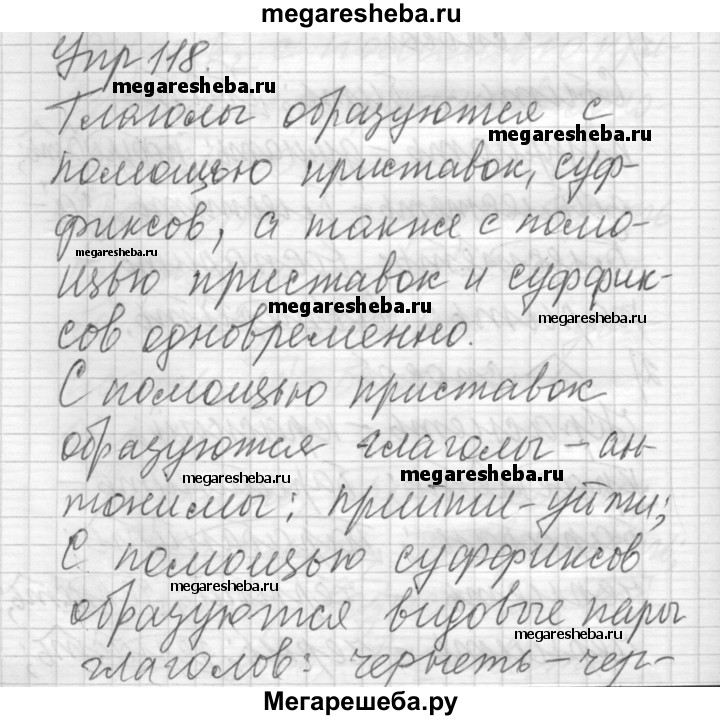 megaresheba.ru
Упр 118.
megaresheba.ru
Глаголы образуются с
megaresheba.ru
помощью приставок, суф-
фиксов, а также с помо-
megaresheba.ru
щью приставок и суффик-
megaresheba.ru
megaresheba.ru
сов одновременно.
С помощью приставок
образуются глаголы - ан-
megaresheba.ru
megaresheba.ru
тонимы: прийти - уйти;
С помощью суффиксов
megaresheba.ru
образуются видовые пары
megaresheba.ru
глаголов: чернеть - чер-
Мегарешеба.ру